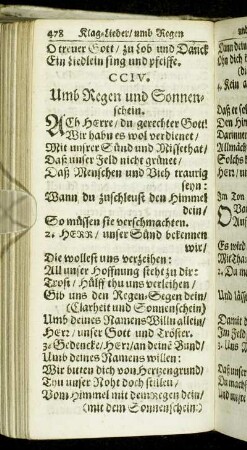 478 Klag-Lieder / umb Regen
O treuer Gott / zu Lob und Danck
Ein Liedlein sing und pfeiffe.
CCIV.
Umb Regen und Sonnen-
schein.
ACh HErre / du gerechter Gott!
Wir habns wol verdienet /
Mit unsrer Sünd und Missethat /
Daß unser Feld nicht grünet /
Daß Menschen und Vieh traurig
seyn:
Wann du zuschleust den Himmel
dein /
So müssen sie verschmachten.
2. HERR / unser Sünd bekennen
wir /
Die wollest uns verzeihen:
All unser Hoffnung steht zu dir:
Trost / Hülff thu uns verleihen /
Gib uns den Regen-Segen dein /
(Clarheit und Sonnenschein)
Umb deines Namens Willn allein /
HErr / unser Gott und Tröster.
3. Gedencke / HErr / an deine Bund /
Umb deines Namens willen:
Wir bitten dich von Hertzengrund /
Thu unser Noht doch stillen /
Vom Himmel mit dem Regen dein /
(mit dem Sonnenschein:)